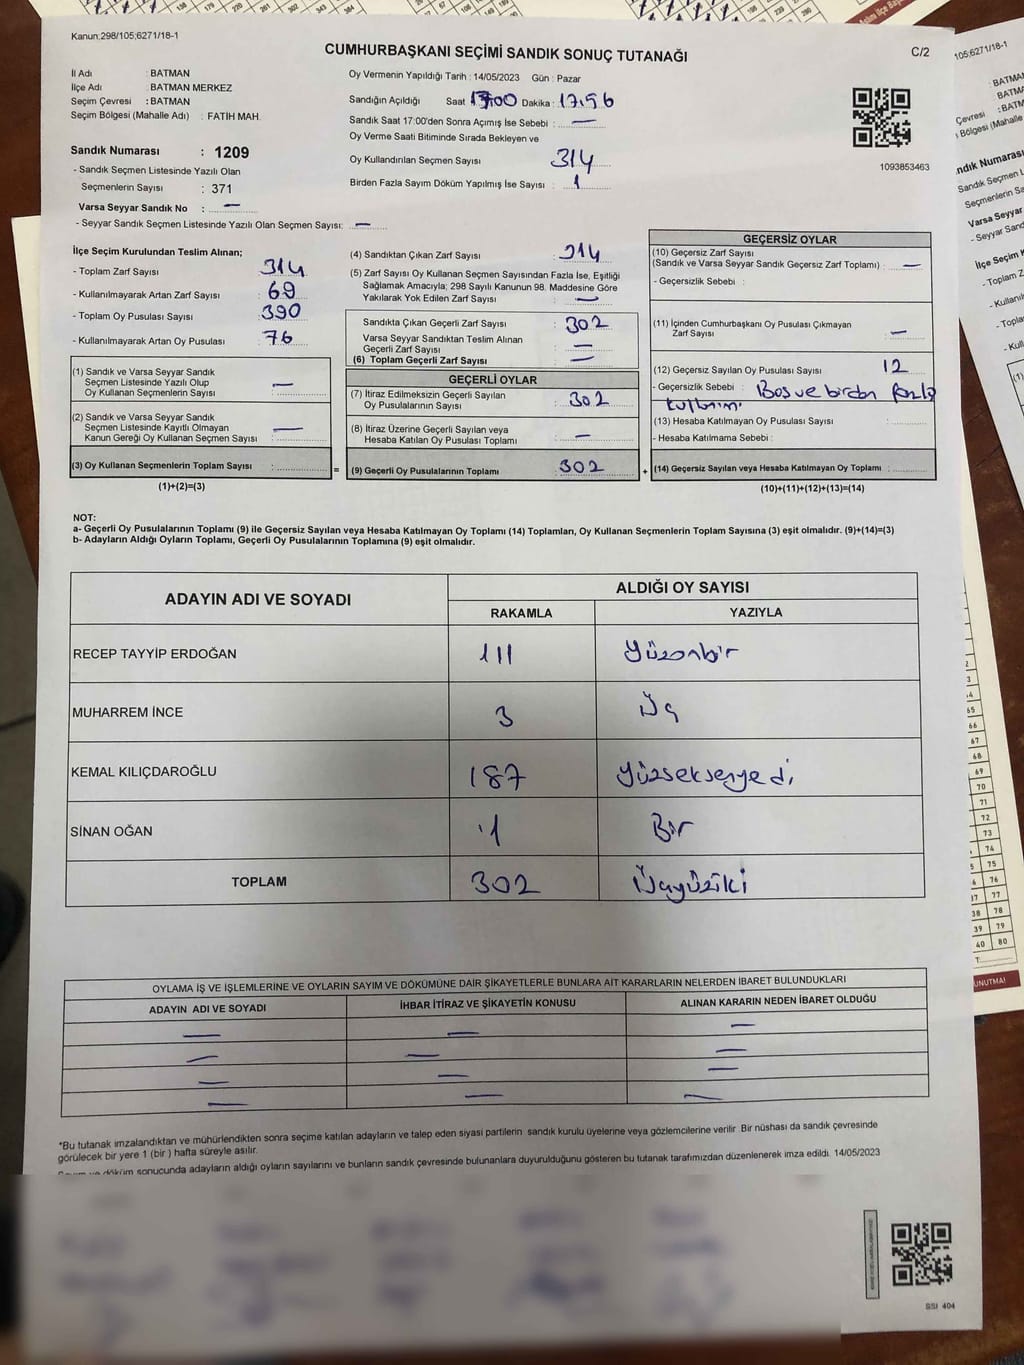 Kanun:298/105;6271/18-1
CUMHURBAŞKANI SEÇİMİ SANDIK SONUÇ TUTANAĞI
C/2
İl Adı : BATMAN
İlçe Adı : BATMAN MERKEZ
Seçim Çevresi : BATMAN
Seçim Bölgesi (Mahalle Adı) : FATİH MAH.
Sandık Numarası : 1209
- Sandık Seçmen Listesinde Yazılı Olan
Seçmenlerin Sayısı : 371
Varsa Seyyar Sandık No : —
- Seyyar Sandık Seçmen Listesinde Yazılı Olan Seçmen Sayısı: —
Oy Vermenin Yapıldığı Tarih : 14/05/2023 Gün : Pazar
Sandığın Açıldığı Saat 17:00 Dakika : 17.56
Sandık Saat 17:00'den Sonra Açımış İse Sebebi : —
Oy Verme Saati Bitiminde Sırada Bekleyen ve
Oy Kullandırılan Seçmen Sayısı 314
Birden Fazla Sayım Döküm Yapılmış İse Sayısı : 1
1093853463
İlçe Seçim Kurulundan Teslim Alınan;
- Toplam Zarf Sayısı : 314
- Kullanılmayarak Artan Zarf Sayısı : 69
- Toplam Oy Pusulası Sayısı : 390
- Kullanılmayarak Artan Oy Pusulası : 76
(1) Sandık ve Varsa Seyyar Sandık
Seçmen Listesinde Yazılı Olup
Oy Kullanan Seçmenlerin Sayısı : —
(2) Sandık ve Varsa Seyyar Sandık
Seçmen Listesinde Kayıtlı Olmayan
Kanun Gereği Oy Kullanan Seçmen Sayısı : —
(3) Oy Kullanan Seçmenlerin Toplam Sayısı :
(1)+(2)=(3)
=
(4) Sandıktan Çıkan Zarf Sayısı : 314
(5) Zarf Sayısı Oy Kullanan Seçmen Sayısından Fazla İse, Eşitliği
Sağlamak Amacıyla; 298 Sayılı Kanunun 98. Maddesine Göre
Yakılarak Yok Edilen Zarf Sayısı : —
Sandıkta Çıkan Geçerli Zarf Sayısı : 302
Varsa Seyyar Sandıktan Teslim Alınan
Geçerli Zarf Sayısı : —
(6) Toplam Geçerli Zarf Sayısı : —
GEÇERLİ OYLAR
(7) İtiraz Edilmeksizin Geçerli Sayılan
Oy Pusulalarının Sayısı : 302
(8) İtiraz Üzerine Geçerli Sayılan veya
Hesaba Katılan Oy Pusulası Toplamı : —
(9) Geçerli Oy Pusulalarının Toplamı : 302
+
GEÇERSİZ OYLAR
(10) Geçersiz Zarf Sayısı
(Sandık ve Varsa Seyyar Sandık Geçersiz Zarf Toplamı) : —
- Geçersizlik Sebebi :
(11) İçinden Cumhurbaşkanı Oy Pusulası Çıkmayan
Zarf Sayısı : —
(12) Geçersiz Sayılan Oy Pusulası Sayısı : 12
- Geçersizlik Sebebi : Boş ve birden fazla
(13) Hesaba Katılmayan Oy Pusulası Sayısı :
- Hesaba Katılmama Sebebi :
(14) Geçersiz Sayılan veya Hesaba Katılmayan Oy Toplamı :
(10)+(11)+(12)+(13)=(14)
NOT:
a- Geçerli Oy Pusulalarının Toplamı (9) ile Geçersiz Sayılan veya Hesaba Katılmayan Oy Toplamı (14) Toplamları, Oy Kullanan Seçmenlerin Toplam Sayısına (3) eşit olmalıdır. (9)+(14)=(3)
b- Adayların Aldığı Oyların Toplamı, Geçerli Oy Pusulalarının Toplamına (9) eşit olmalıdır.
ADAYIN ADI VE SOYADI
ALDIĞI OY SAYISI
RAKAMLA YAZIYLA
RECEP TAYYİP ERDOĞAN 111 Yüzonbir
MUHARREM İNCE 3 Üç
KEMAL KILIÇDAROĞLU 187 Yüzseksenyedi
SİNAN OĞAN 1 Bir
TOPLAM 302 Üçyüziki
OYLAMA İŞ VE İŞLEMLERİNE VE OYLARIN SAYIM VE DÖKÜMÜNE DAİR ŞİKAYETLERLE BUNLARA AİT KARARLARIN NELERDEN İBARET BULUNDUKLARI
ADAYIN ADI VE SOYADI İHBAR İTİRAZ VE ŞİKAYETİN KONUSU ALINAN KARARIN NEDEN İBARET OLDUĞU
— — —
— — —
— — —
— — —
*Bu tutanak imzalandıktan ve mühürlendikten sonra seçime katılan adayların ve talep eden siyasi partilerin sandık kurulu üyelerine veya gözlemcilerine verilir. Bir nüshası da sandık çevresinde
görülecek bir yere 1 (bir ) hafta süreyle asılır.
döküm sonucunda adayların aldığı oyların sayılarını ve bunların sandık çevresinde bulunanlara duyurulduğunu gösteren bu tutanak tarafımızdan düzenlenerek imza edildi. 14/05/2023
SSI 404